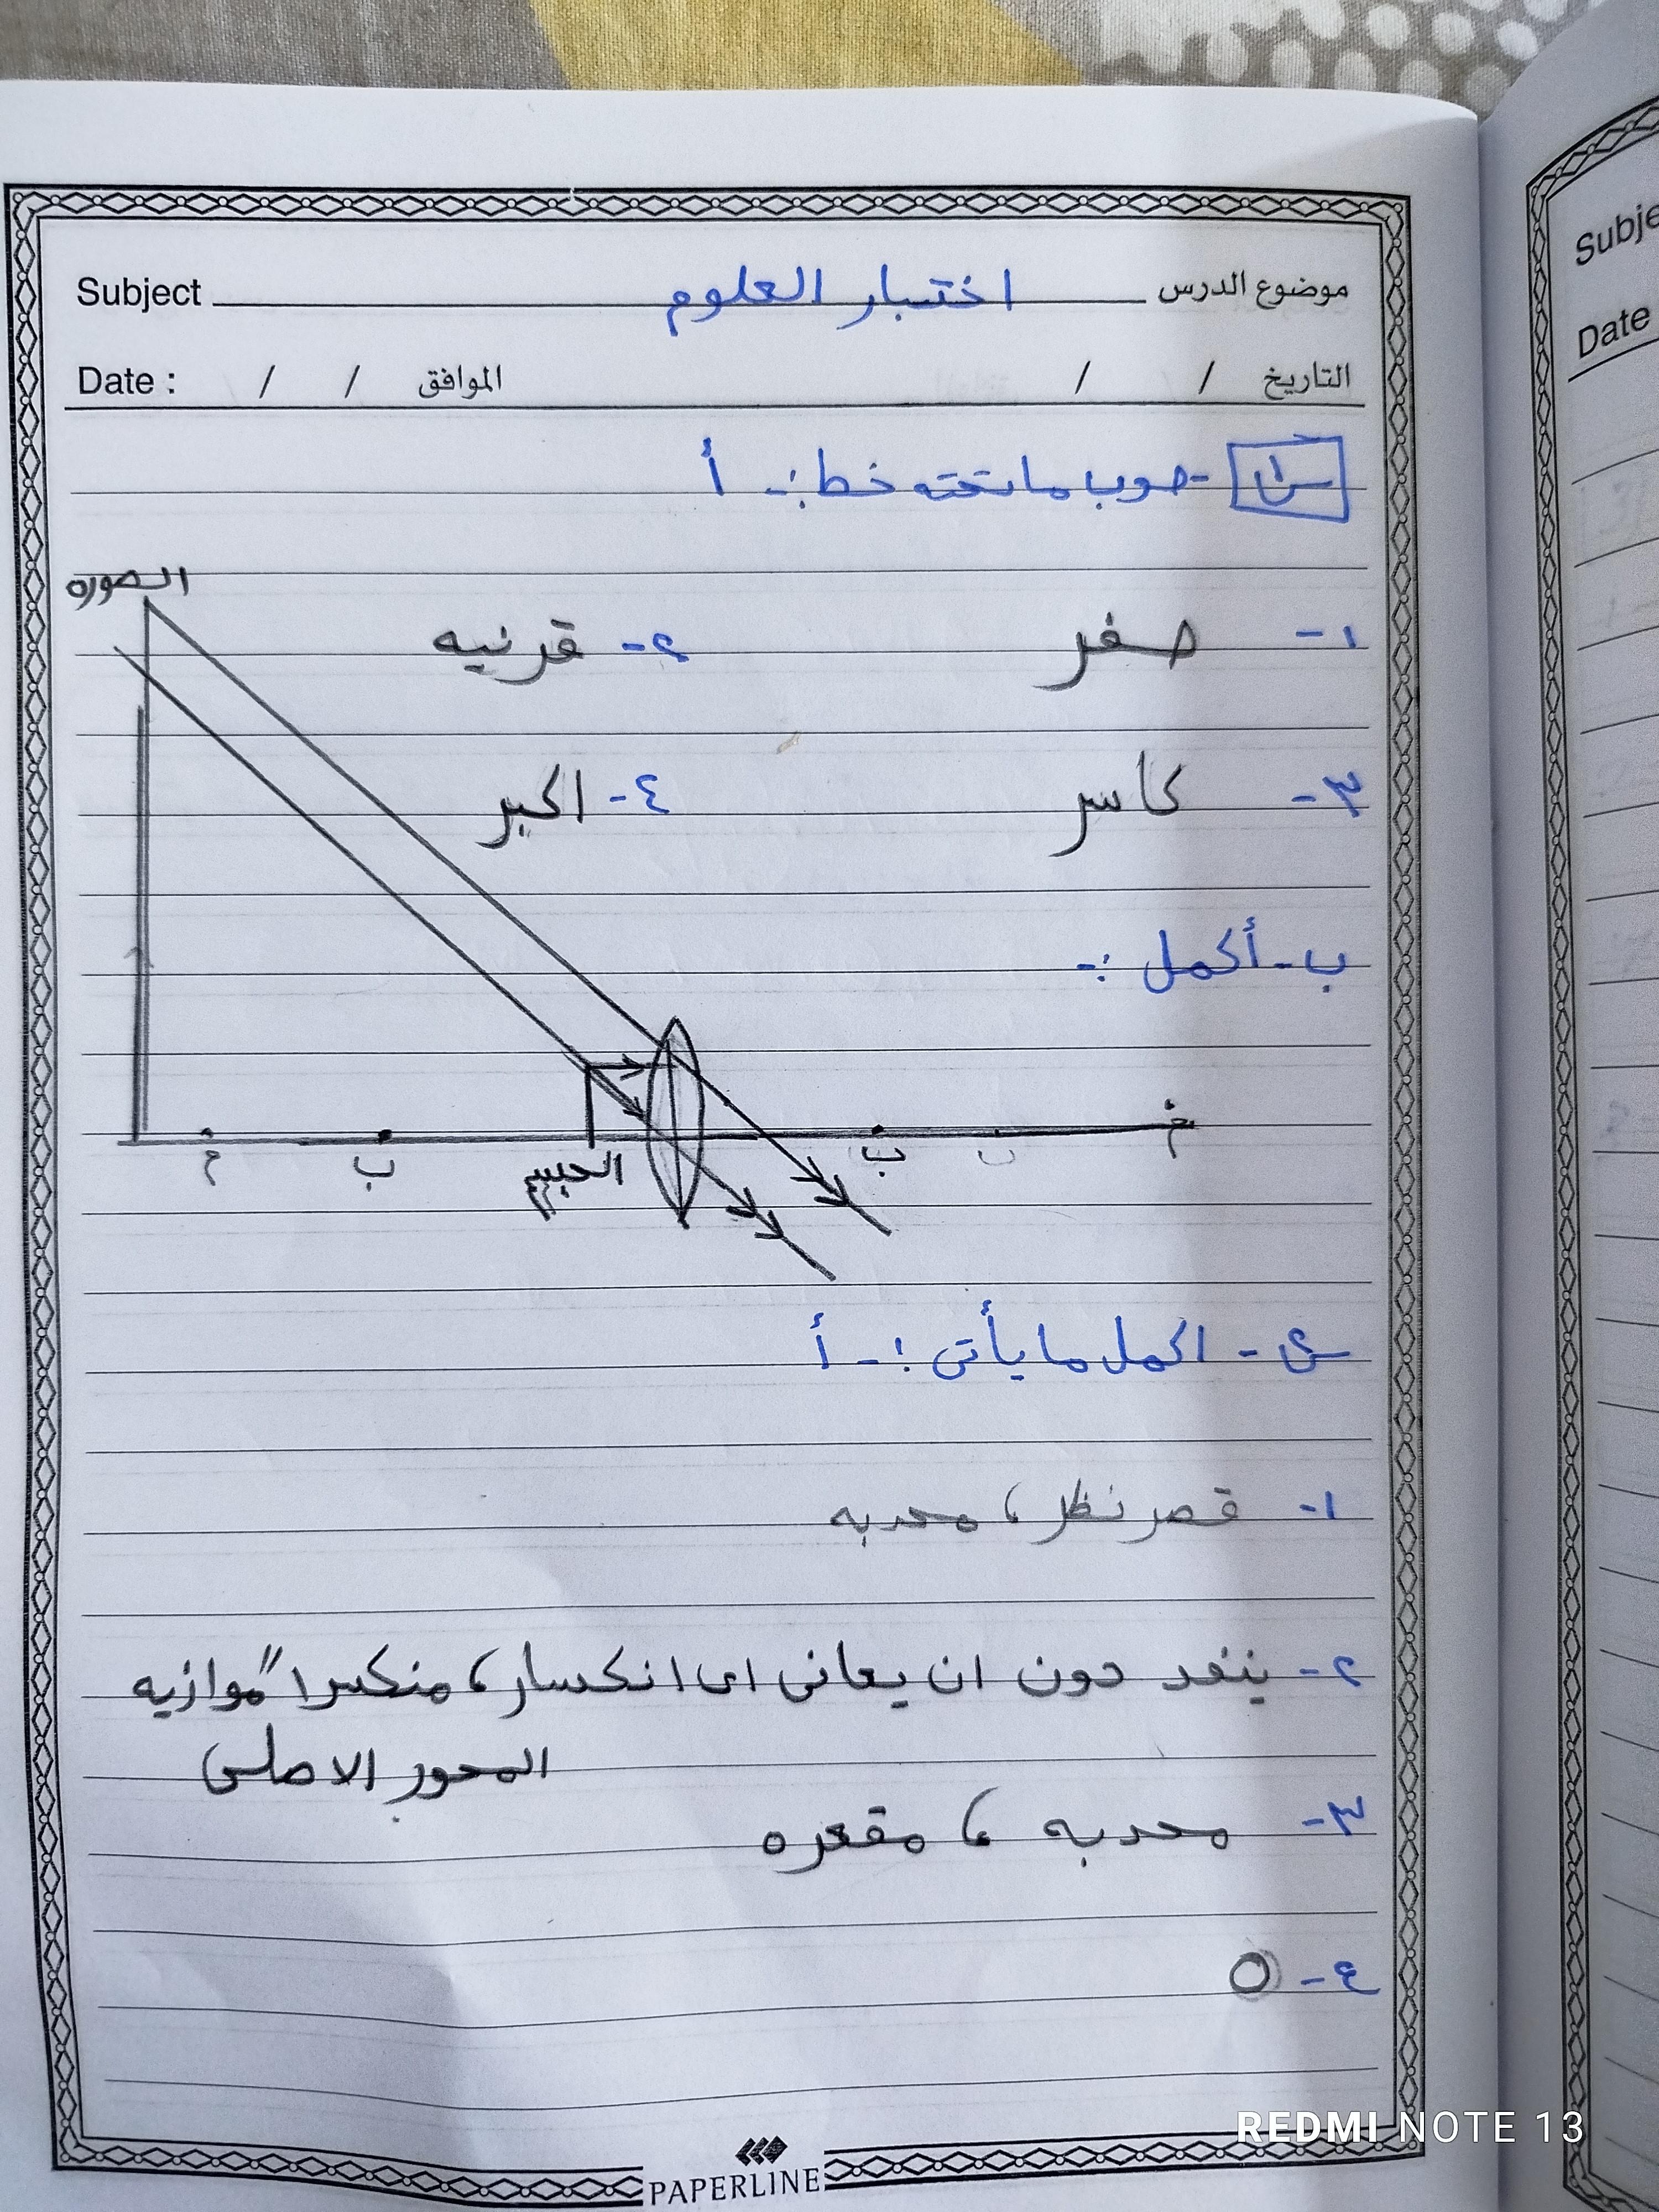 Subject اختبار العلوم موضوع الدرس
Date : / / الموافق / / التاريخ
س١ -صوب ما تحته خط :- أ
الصوره
١- صفر ٢- قرنيه
٣- كاسر ٤- اكبر
ب- أكمل :-
م ب الجسم ب م
س٢ - اكمل ما يأتى :- أ
١- قصر نظر ، محدبه
٢- ينفد دون ان يعانى اى انكسار ، منكسرا" موازيه
المحور الاصلى
٣- محدبه ، مقعره
٤- ٥
PAPERLINE
REDMI NOTE 13
Subje
Date